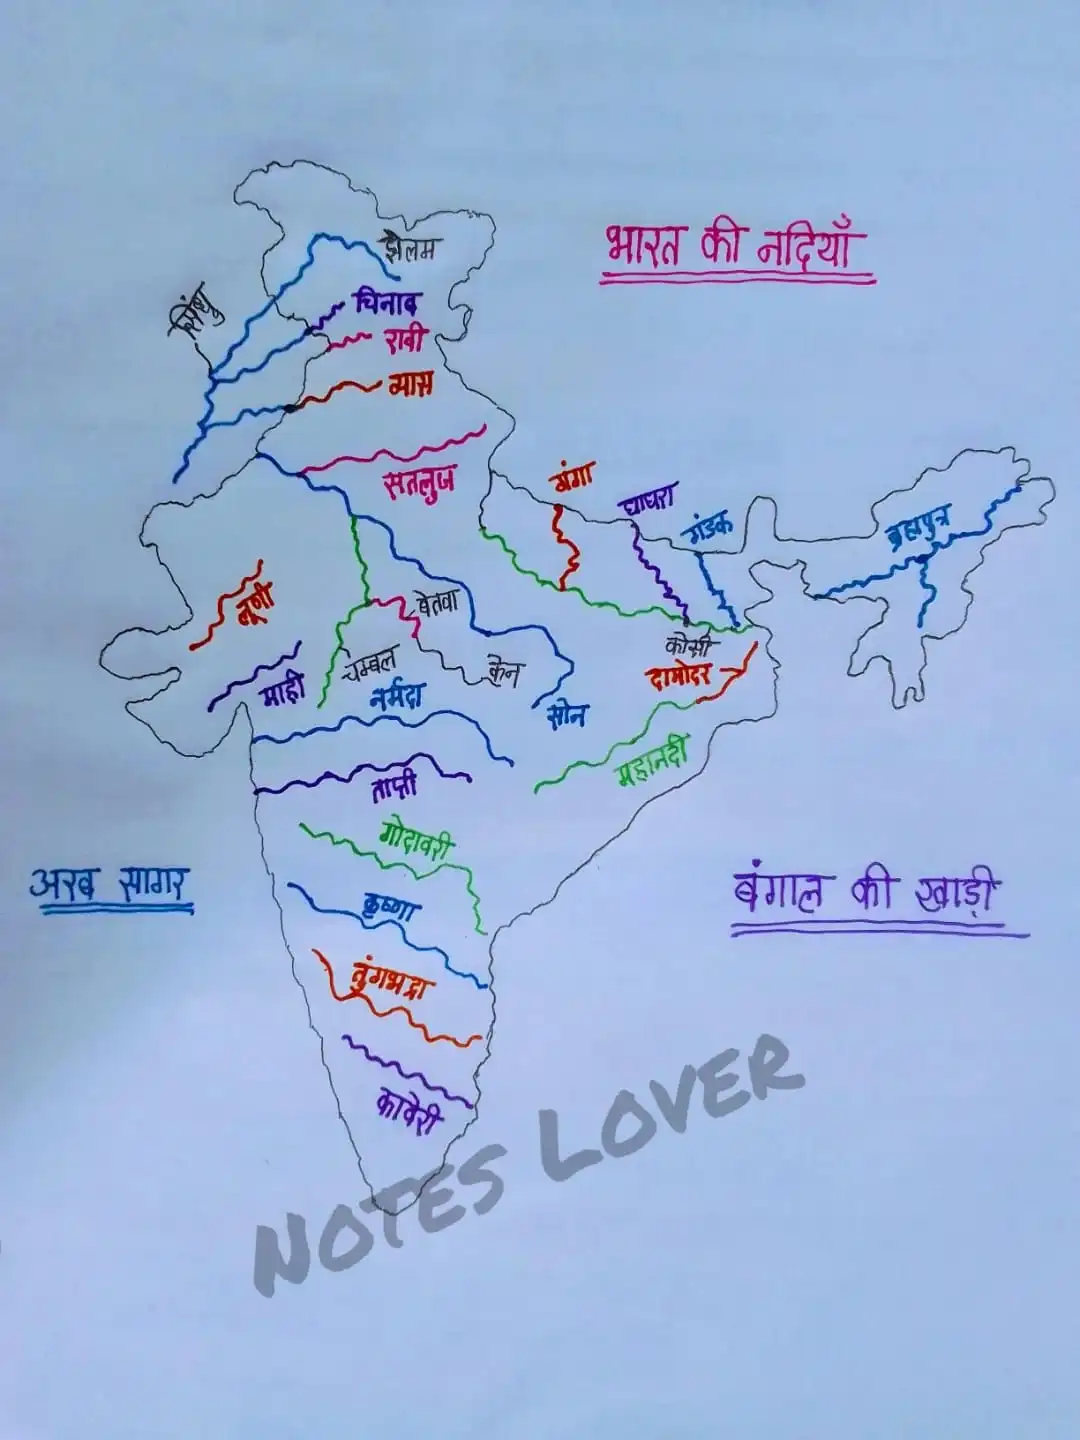 भारत की नदियाँ
झेलम
सिंधु
चिनाब
रावी
व्यास
सतलुज
गंगा
घाघरा
गंडक
ब्रह्मपुत्र
लूणी
बेतवा
कोसी
चम्बल
केन
दामोदर
माही
नर्मदा
सोन
महानदी
ताप्ती
गोदावरी
अरब सागर
बंगाल की खाड़ी
कृष्णा
तुंगभद्रा
कावेरी
NOTES LOVER